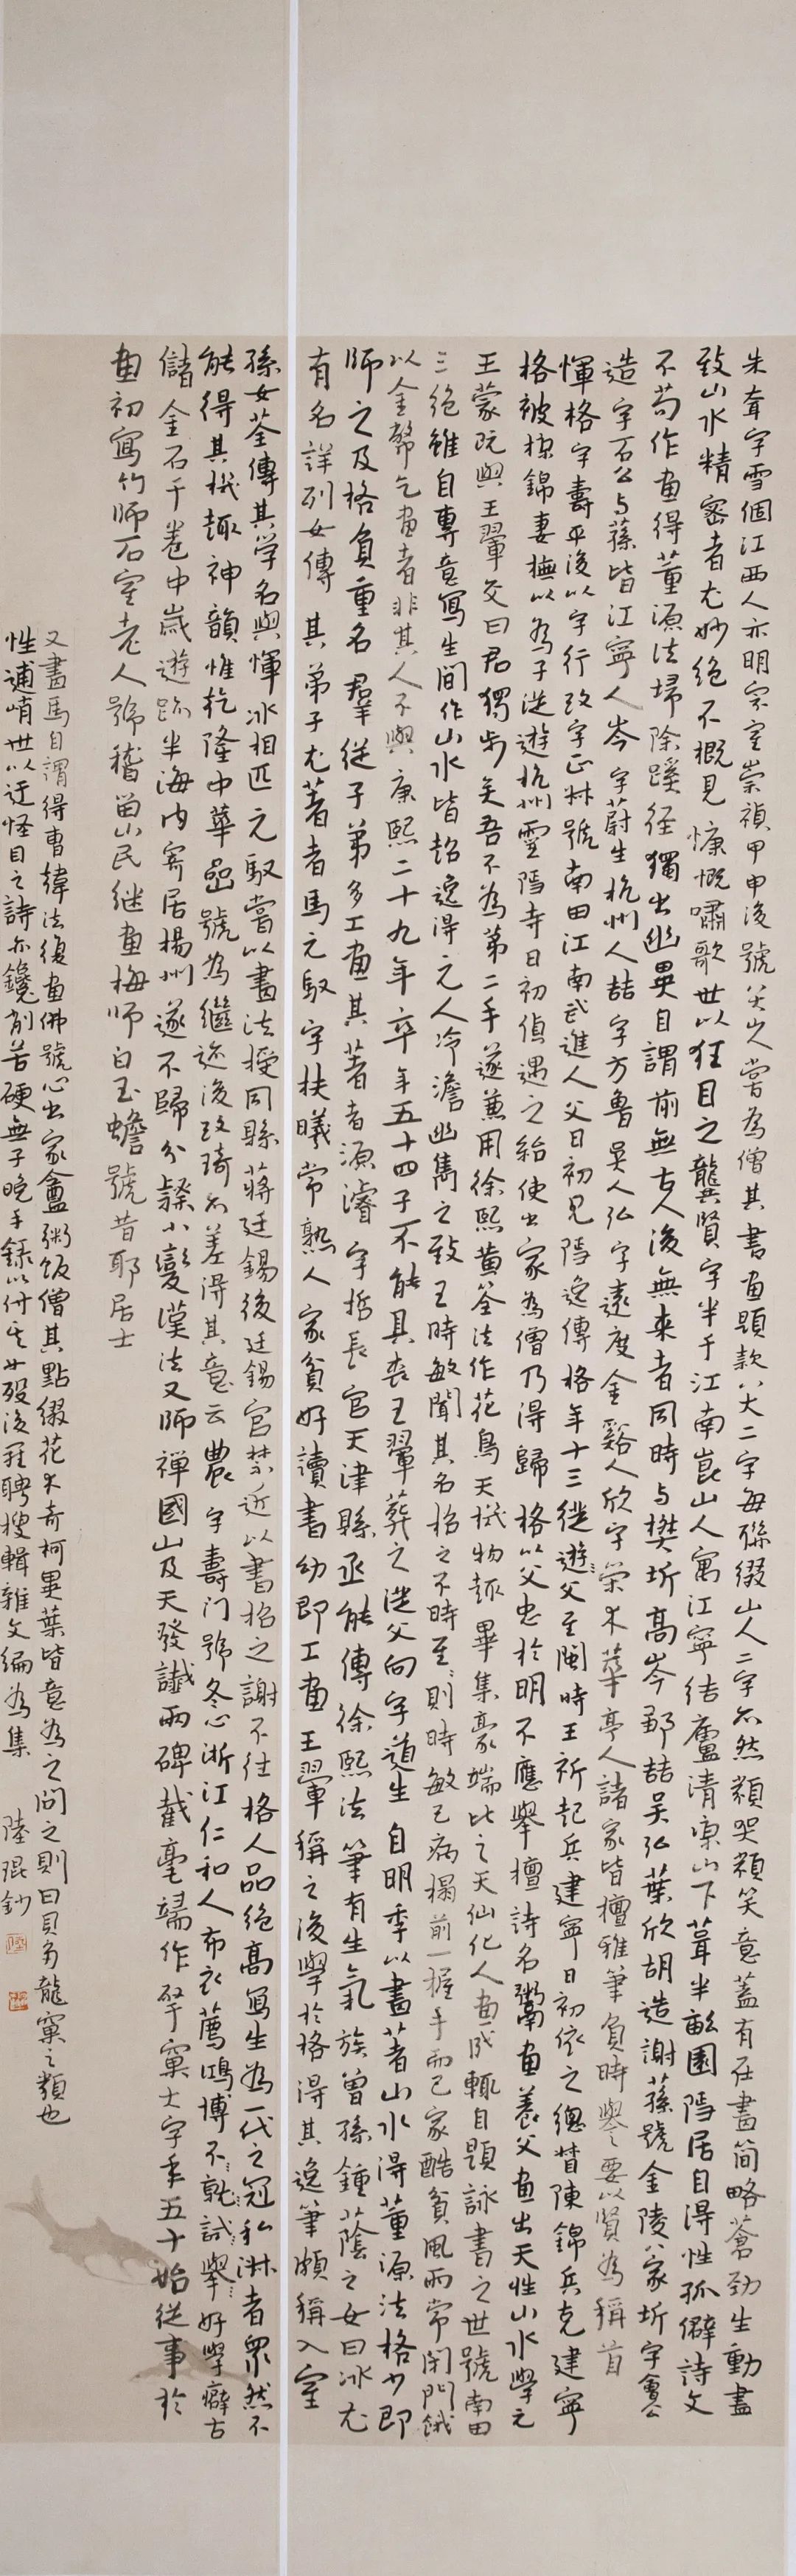 朱耷字雪個江西人亦明宗室崇禎甲申後號八大山人嘗為僧其書畫題款八大二字每聯綴山人二字亦然類哭類笑意蓋有在畫簡略蒼勁生動盡
致山水精密者尤妙絕不概見慷慨嘯歌世以狂目之龔賢字半千江南崑山人寓江寧結廬清涼山下葺半畝園隱居自得性孤僻詩文
不苟作畫得董源法掃除蹊徑獨出幽異自謂前無古人後無來者同時與樊圻高岑鄒喆吴弘葉欣胡造謝蓀號金陵八家圻字會公
造字石公与蓀皆江寧人岑字蔚生杭州人喆字方魯吴人弘字遠度金谿人欣字榮木華亭人諸家皆擅雅筆負時譽要以賢為稱首
惲格字壽平後以字行改字正叔號南田江南武進人父日初見隱逸傳格年十三從遊父至閩時王祈起兵建寧日初依之總督陳錦兵克建寧
格被掠錦妻撫以為子從遊杭州靈隱寺日初偵遇之紿使出家為僧乃得歸格以父忠於明不應舉擅詩名鬻畫養父畫出天性山水學元
王蒙既與王翬交曰君獨步矣吾不為第二手遂兼用徐熙黄筌法作花鳥天機物趣畢集豪端比之天仙化人畫成輒自題詠書之世號南田
三絕雖自專意寫生間作山水皆超逸得元人冷澹幽雋之致王時敏聞其名招之不時至則時敏已病榻前一握手而已家酷貧風雨常閉門餓
以金幣乞畫者非其人不與康熙二十九年卒年五十四子不能具喪王翬葬之從父向字道生自明季以畫著山水得董源法格少即
師之及格負重名羣從子弟多工畫其著者源濬字哲長官天津縣丞能傳徐熙法筆有生氣族曾孫鍾蔭之女曰冰尤
有名詳列女傳其弟子尤著者馬元馭字扶曦常熟人家貧好讀書幼即工畫王翬稱之後學於格得其逸筆頗稱入室
孫女荃傳其学名與惲冰相匹元馭嘗以畫法授同縣蔣廷錫後廷錫官禁近以書招之謝不往格人品絕高寫生為一代之冠私淑者眾然不
能得其機趣神韻惟乾隆中華嵒號為繼迹後改琦亦差得其意云農字壽门號冬心浙江仁和人布衣薦鴻博不就試舉好學癖古
儲金石千卷中歲遊跡半海内寄居揚州遂不歸分隸小變漢法又師禅國山及天發讖兩碑截毫端作擘窠大字年五十始從事於
畫初寫竹師石室老人號稽留山民继畫梅師白玉蟾號昔耶居士
又畫馬自謂得曹韓法復畫佛號心出家盦粥飯僧其點綴花木奇柯異葉皆意為之问之則曰貝多龍窠之類也
性逋峭世以迂怪目之詩亦鑱削苦硬無子晚手錄以付其女殁後羅聘搜輯雜文编為集　陸琨鈔